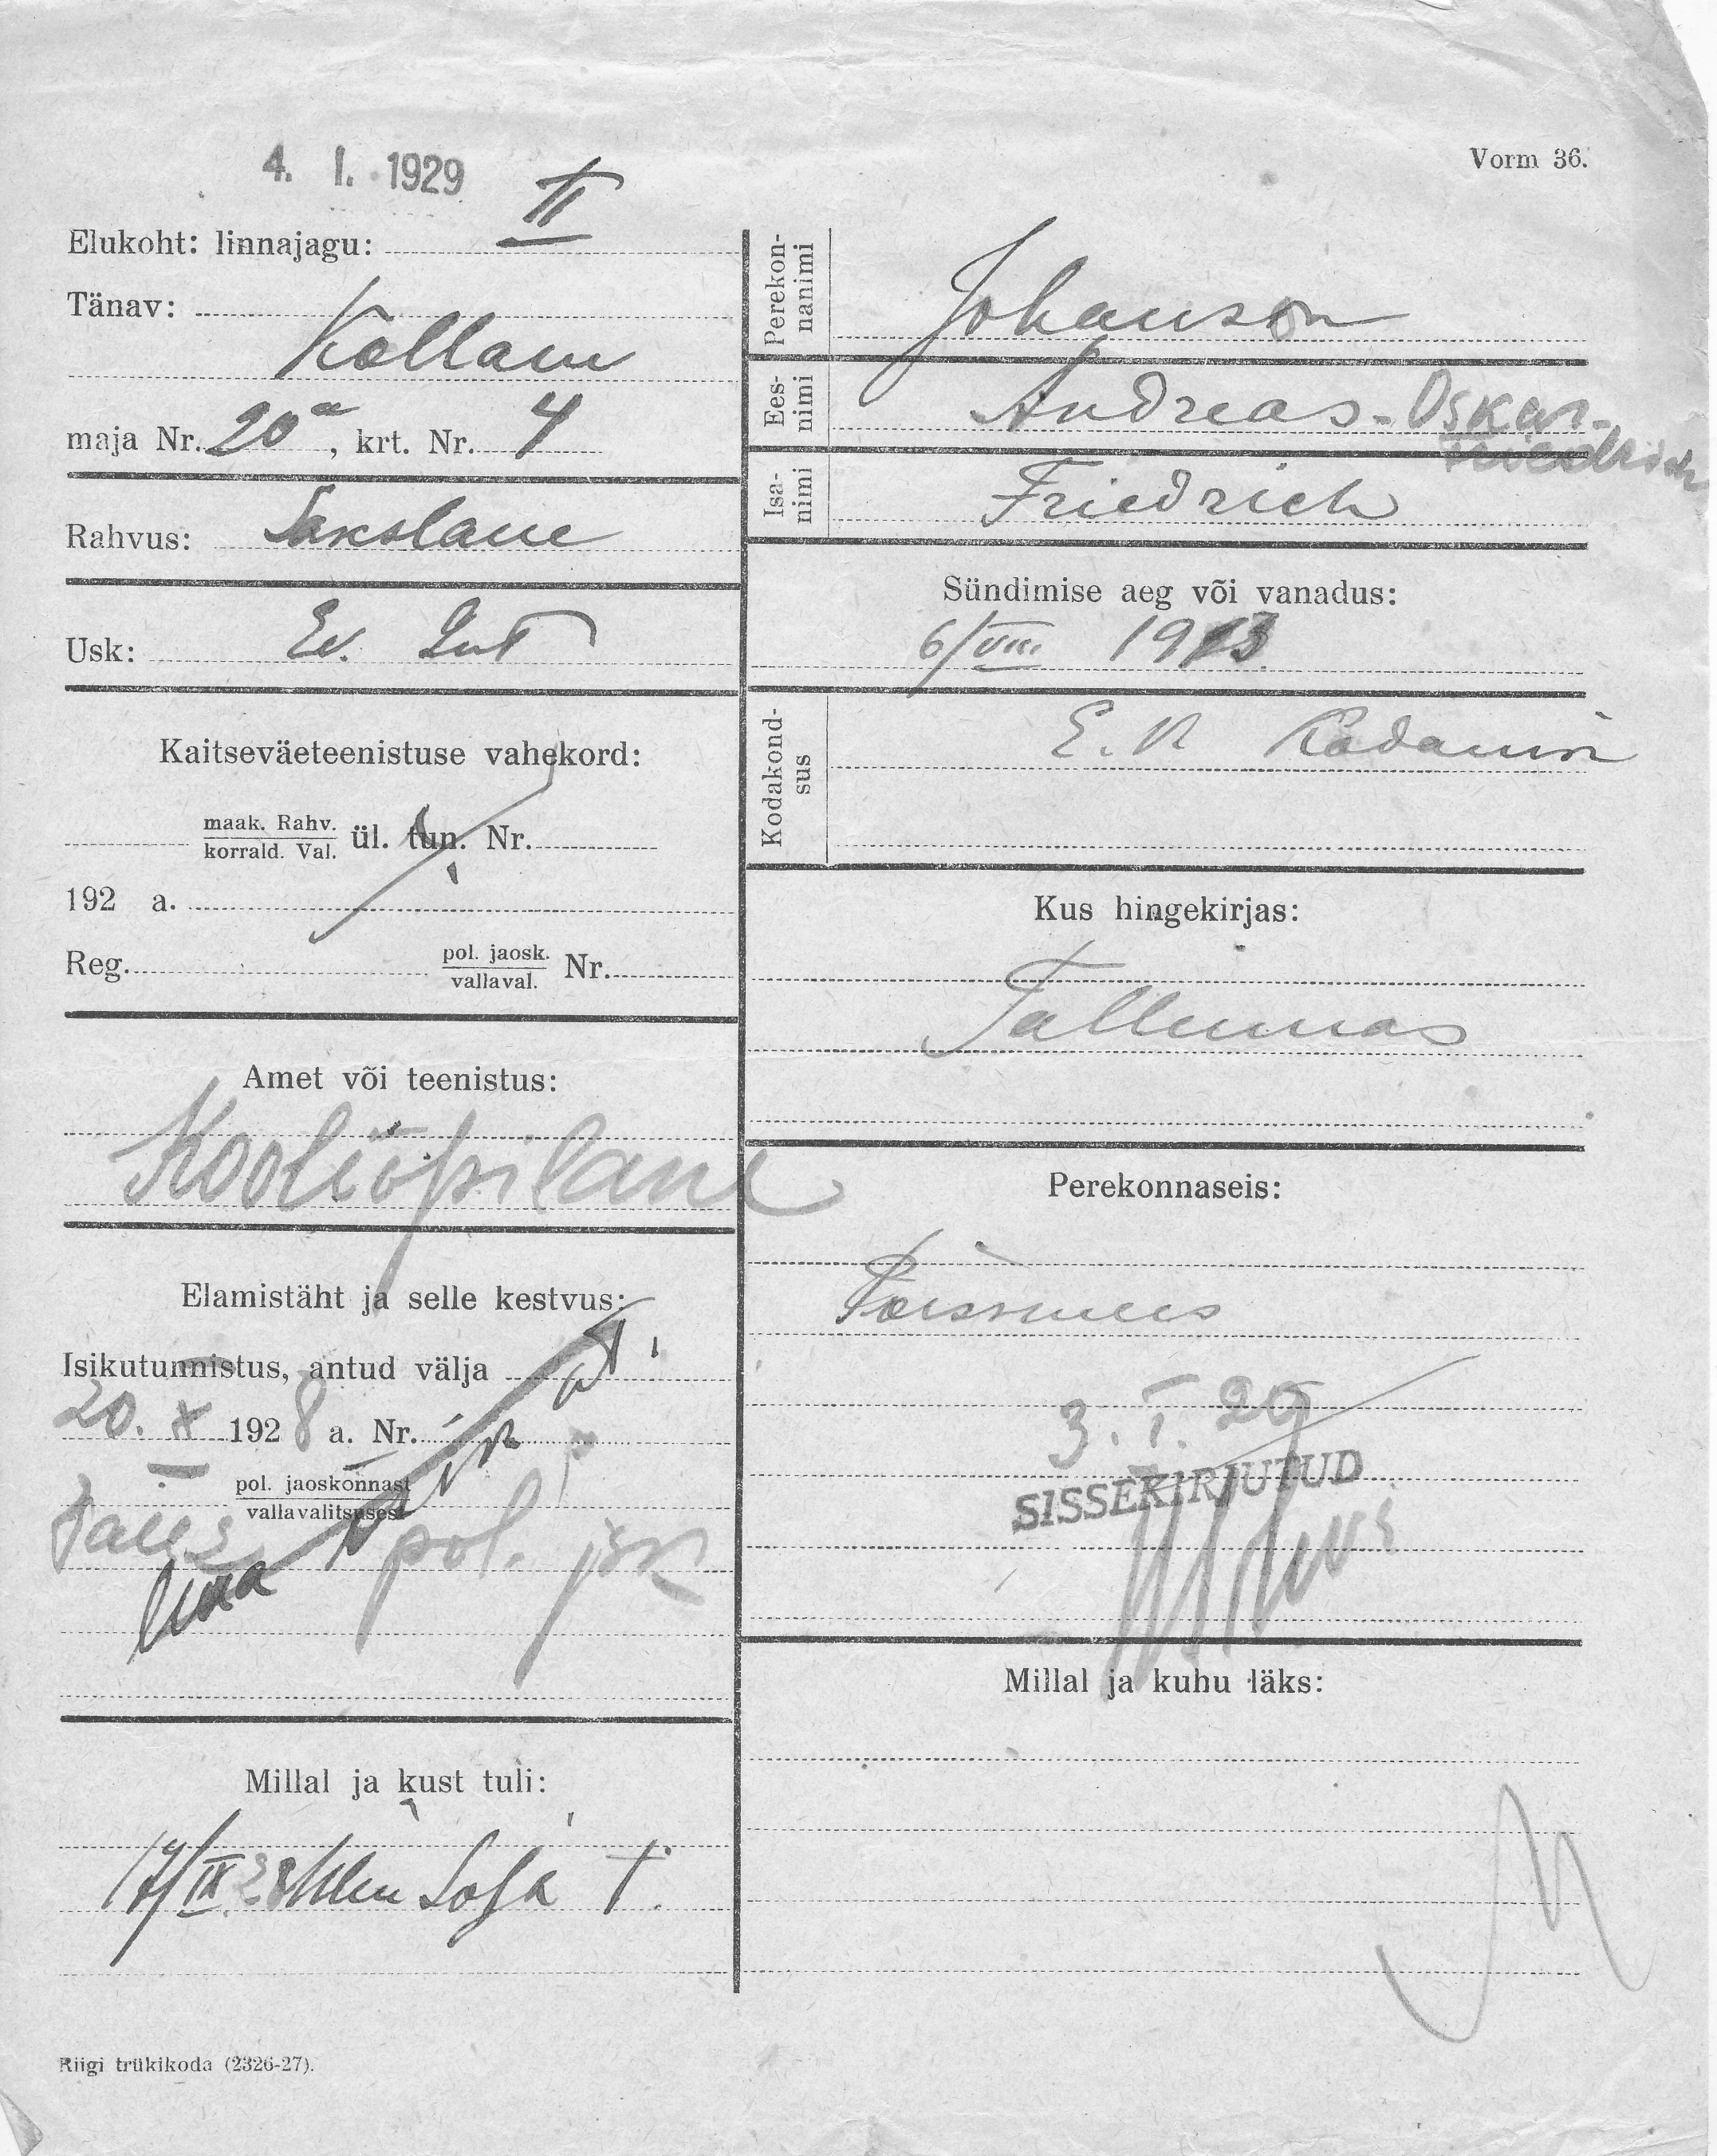 4. I. 1929
Vorm 36.
Elukoht: linnajagu: II
Tänav:
Kollane
maja Nr. 20a, krt. Nr. 4
Rahvus: Sakslane
Usk: Ev. Lut
Kaitseväeteenistuse vahekord:
maak. Rahv.
korrald. Val. ül. tun. Nr.
192 a.
Reg. pol. jaosk.
vallaval. Nr.
Amet või teenistus:
Kooliõpilane
Elamistäht ja selle kestvus:
Isikutunnistus, antud välja
20. X 1928 a. Nr.
pol. jaoskonnast
vallavalitsusest
pol. jsk
ilma
Millal ja kust tuli:
17/IX 28
Riigi trükikoda (2326-27).
Perekon-
nanimi
Johanson
Ees-
nimi
Andreas-Oskar-
Friedrich
Isa-
nimi
Friedrich
Sündimise aeg või vanadus:
6/VIII 1913
Kodakond-
sus
E. V. Kodanik
Kus hingekirjas:
Tallinnas
Perekonnaseis:
Poismees
3. I. 29
SISSEKIRJUTUD
Millal ja kuhu läks: